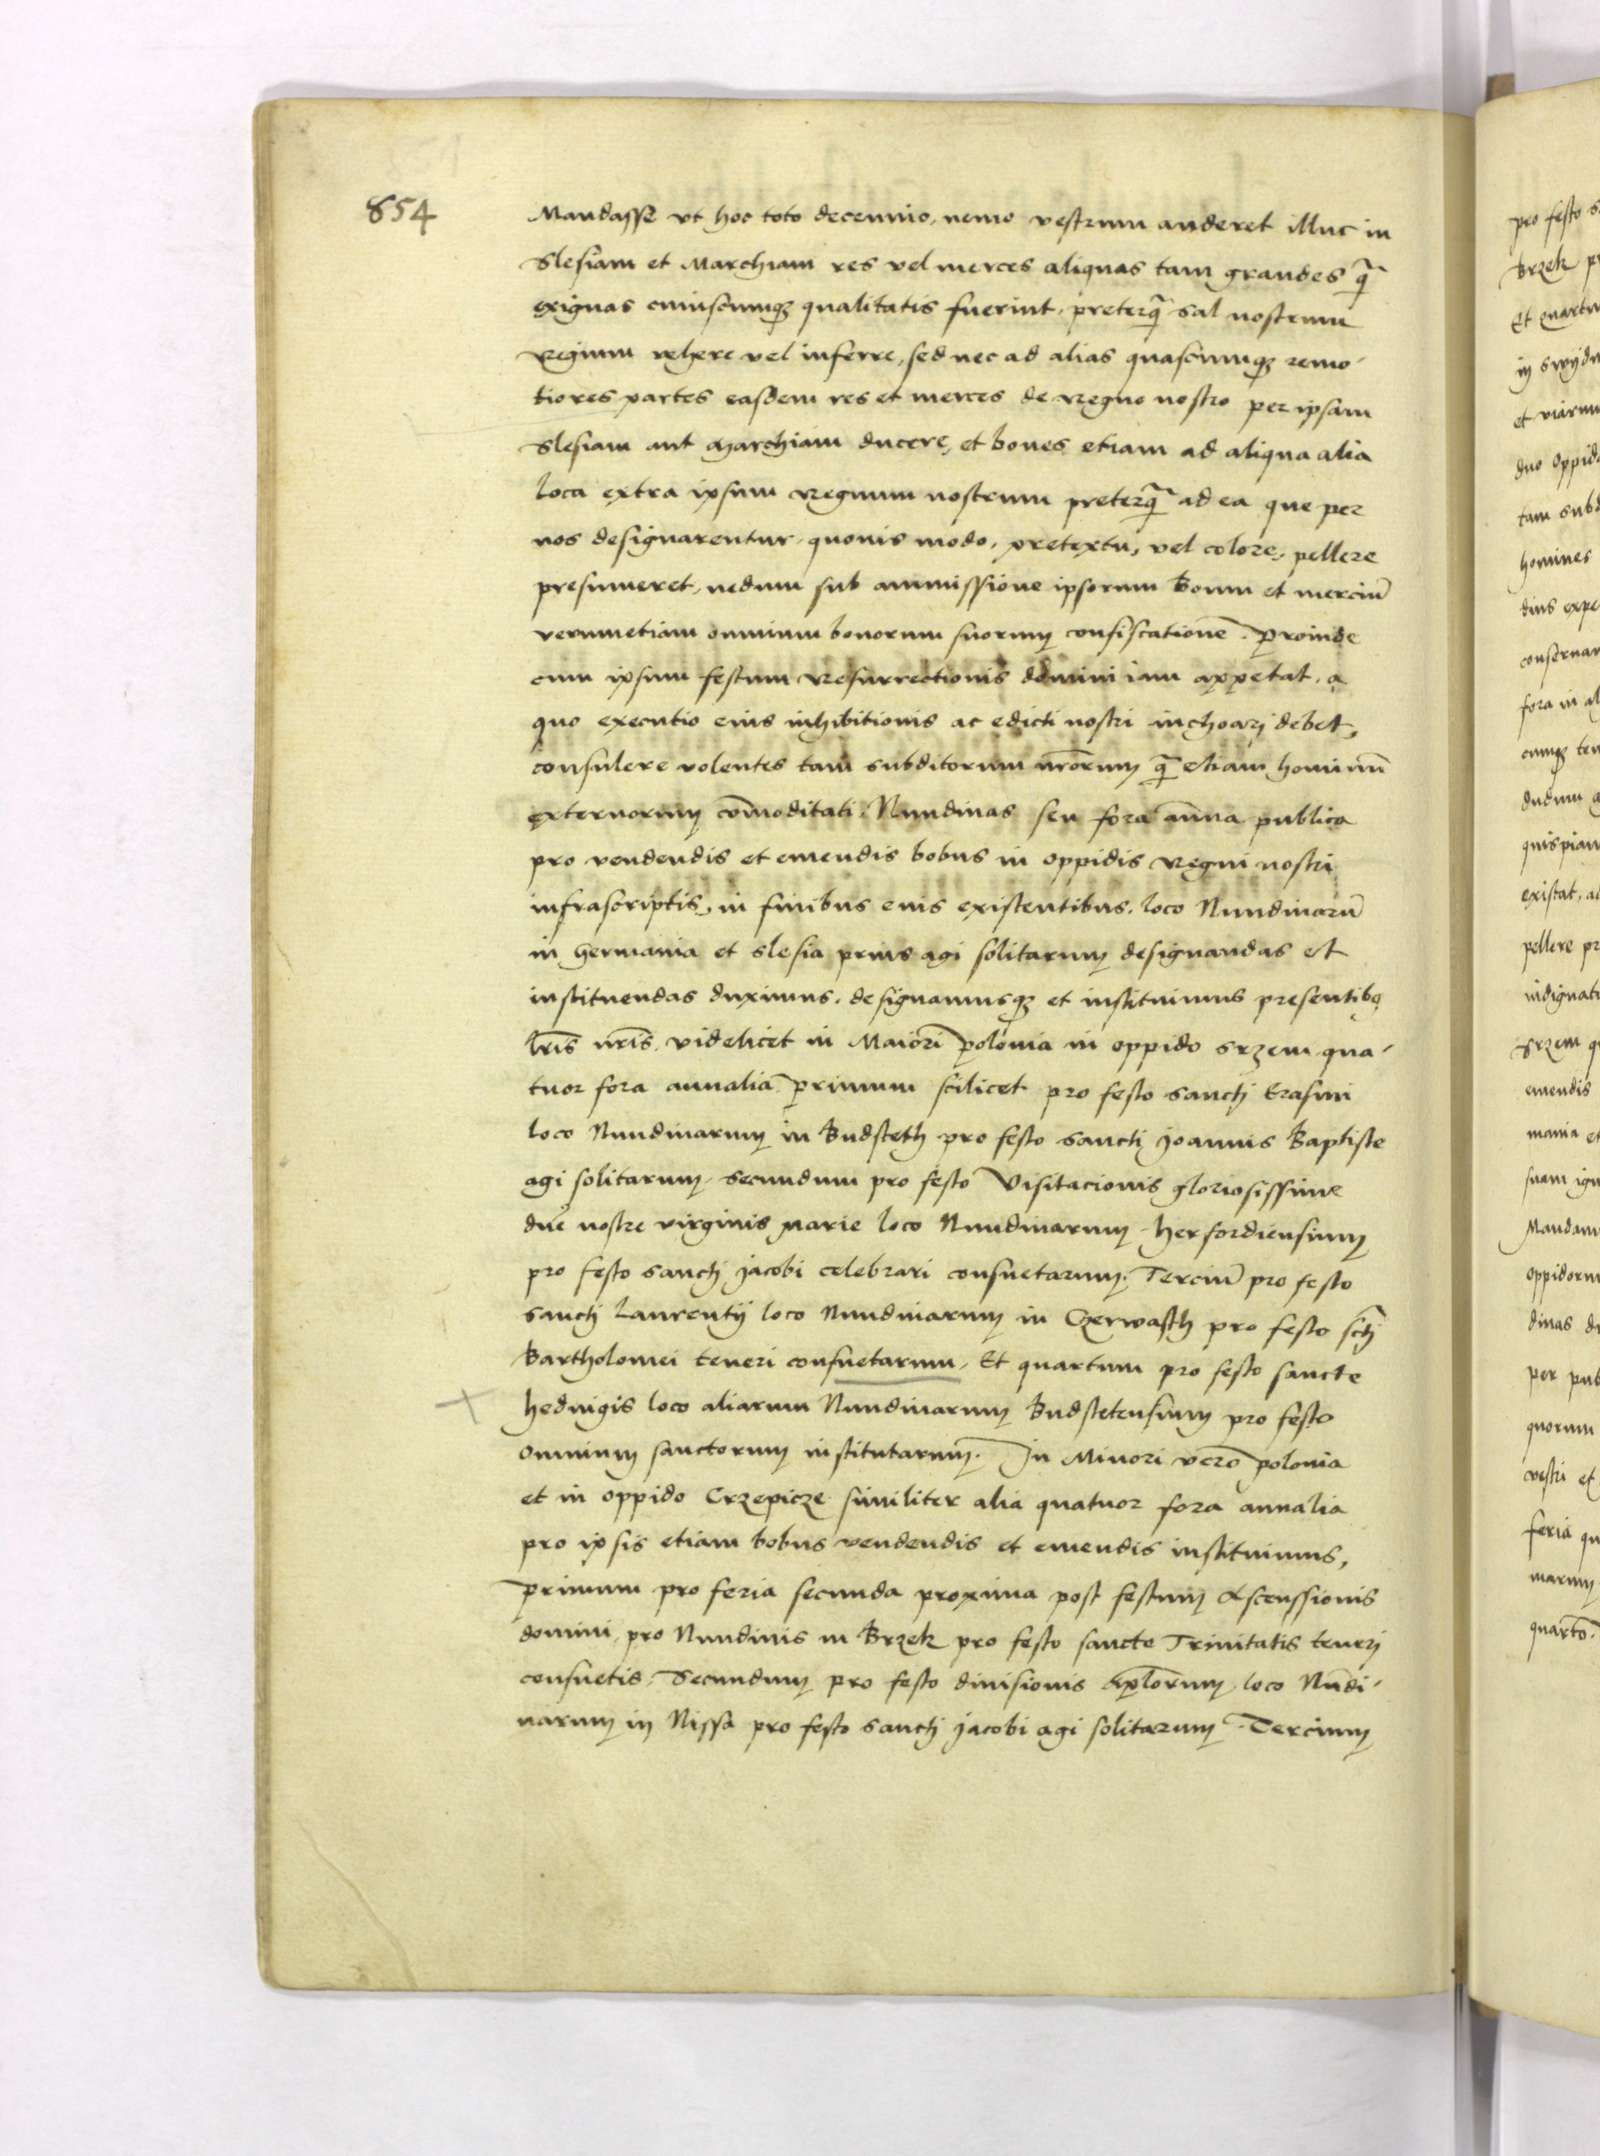 854
Mandasse vt hoc toto decennio, nemo vestrum auderet illuc in
Slesiam et Marchiam res vel merces aliquas tam grandes q̃
exiguas cuiuscumqȝ qualitatis fuerint, preterq̃ sal nostrum
regium vehere vel inferre, sed nec ad alias quascumqȝ remo-
tiores partes easdem res et merces de regno nostro per ipsam
Slesiam aut Marchiam ducere, et boues etiam ad aliqua alia
loca extra ipsum regnum nostrum preterq̃ ad ea que per
nos designarentur, quouis modo, pretextu, vel colore, pellere
presumeret, nedum sub ammissione ipsorum Boum et merciũ
verumetiam omnium bonorum suorum confiscatione. Proinde
cum ipsum festum Resurrectionis domini iam appetat, a
quo executio eius inhibitionis ac edicti nostri inchoari debet,
consulere volentes tam subditorum nr̃orum q̃ etiam hominũ
externorum cõmoditati, Nundinas seu fora ãnua publica
pro vendendis et emendis bobus in oppidis regni nostri
infrascriptis, in finibus eius existentibus, loco Nundinarũ
in Germania et Slesia prius agi solitarum designandas et
instituendas duximus, designamusqȝ et instituimus presentibꝰ
lr̃is nr̃is, videlicet in Maiori polonia in oppido Srzem qua-
tuor fora annalia primum scilicet pro festo sancti Erasmi
loco Nundinarum in Budsteth pro festo sancti Joannis Baptiste
agi solitarum, Secundum pro festo Visitacionis gloriosissime
dñe nostre virginis Marie loco Nundinarum Herfordiensium
pro festo sancti Jacobi celebrari consuetarum, Terciũ pro festo
sancti Laurentij loco Nundinarum in Czerwasth pro festo sc̃ti
Bartholomei teneri consuetarum, Et quartum pro festo sancte
Heduigis loco aliarum Nundinarum Budstetensium pro festo
omnium sanctorum institutarum. In Minori vero polonia
et in oppido Crzepicze similiter alia quatuor fora annalia
pro ipsis etiam bobus vendendis et emendis instituimus,
Primum pro feria secunda proxima post festum Ascenssionis
domini, pro Nundinis in Brzek pro festo sancte Trinitatis teneri
consuetis, Secundum pro festo diuisionis Apl̃orum, loco Nũdi-
narum in Nissa pro festo sancti Jacobi agi solitarum, Tercium